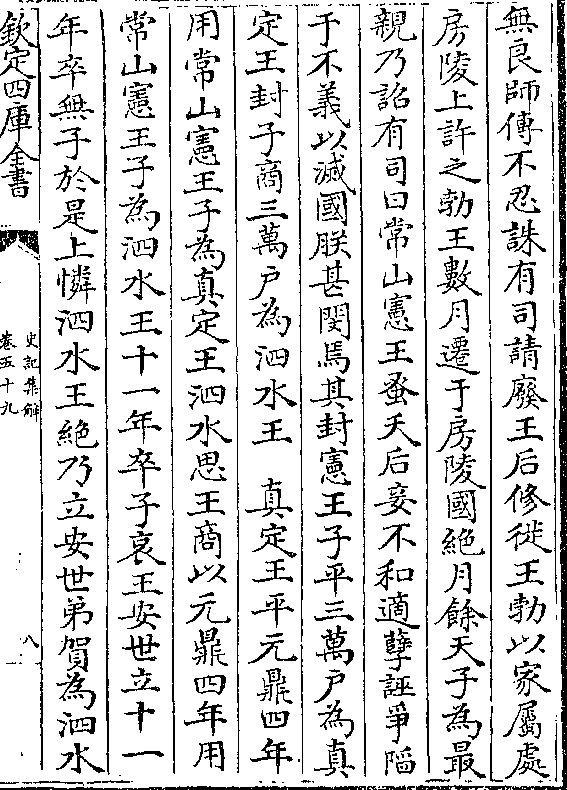 無良師傅不忍誅有司請廢王后修徙王勃以家屬處
房陵上許之勃王數月遷于房陵國絶月餘天子為最
親乃詔有司曰常山憲王蚤夭后妾不和適孽誣爭陷
于不義以滅國朕甚閔焉其封憲王子平三萬户為真
定王封子商三萬户為泗水王　真定王平元鼎四年
用常山憲王子為真定王泗水思王商以元鼎四年用
常山憲王子為泗水王十一年卒子哀王安世立十一
年卒無子於是上憐泗水王絶乃立安世弟賀為泗水
欽定四庫全書
史記集解
卷五十九
八